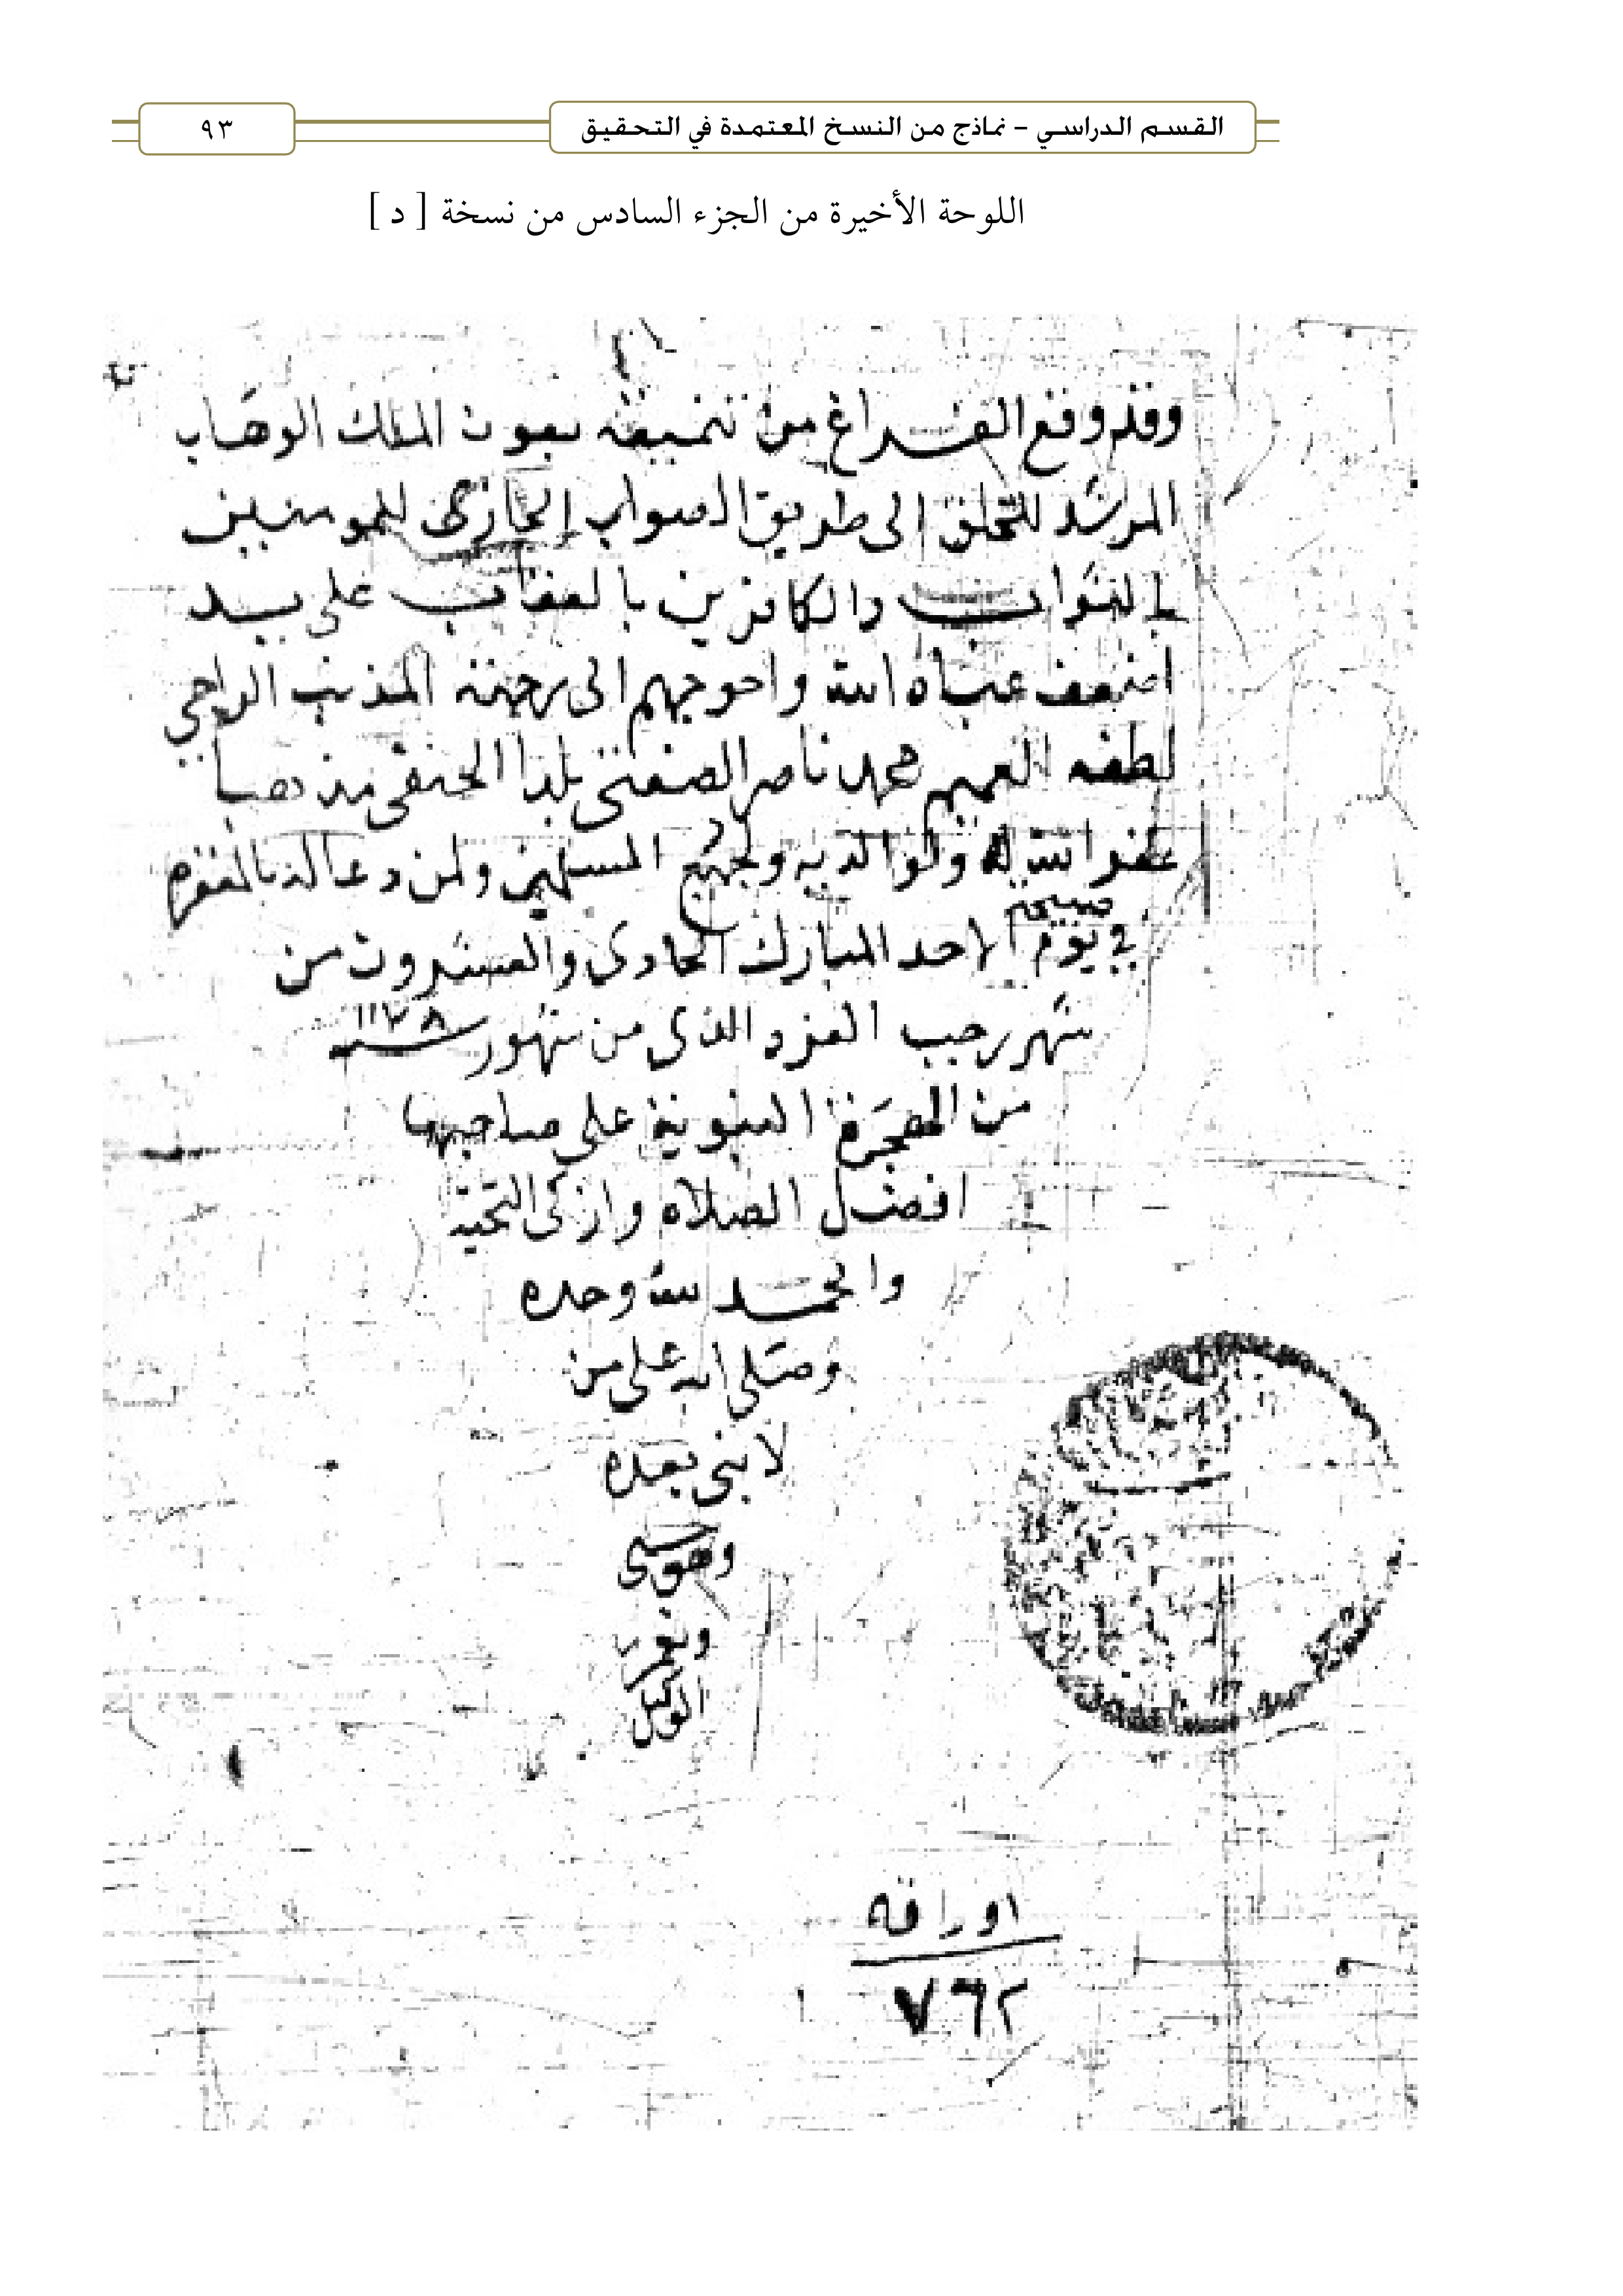 القسم الدراسي – نماذج من النسخ المعتمدة في التحقيق
٩٣
اللوحة الأخيرة من الجزء السادس من نسخة [ د ]
وقد وقع الفراغ من تنميقه بعون الملك الوهاب
المرشد للخلق الى طريق الصواب المجازى للمومنين
بالثواب والكافرين بالعقاب على يد
اضعف عباد الله واحوجهم الى رحمته المذنب الراجي
لطفه العميم محمد ناصر بلدا الحنفى مذهبا
غفر الله له ولوالديه ولجميع المسلمين ولمن دعا له بالمغفره
صبيحة
في يوم الاحد المبارك الحادى والعشرون من
شهر رجب الفرد الذى من شهور سنة ١١٧٨
من الهجرة النبوية على صاحبها
افضل الصلاه وازكى التحية
والحمد لله وحده
وصلى الله على من
لا نبى بعده
وهو حسبى
ونعم
الوكيل
اوراقه
٧٦٢